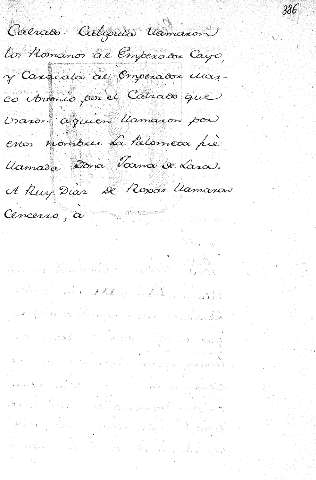 386
Calzado. Caligula llamaron
los Romanos al Emperador Cayo,
y Caracala al Emperador Mar-
co Antonio, por el Calzado que
vsaron aquien llamaron por
estos nombres. La Palometa fuè
llamada Dona Joana De Lara.
A Ruy Diaz De Roxas llamaron
Cencerro, à